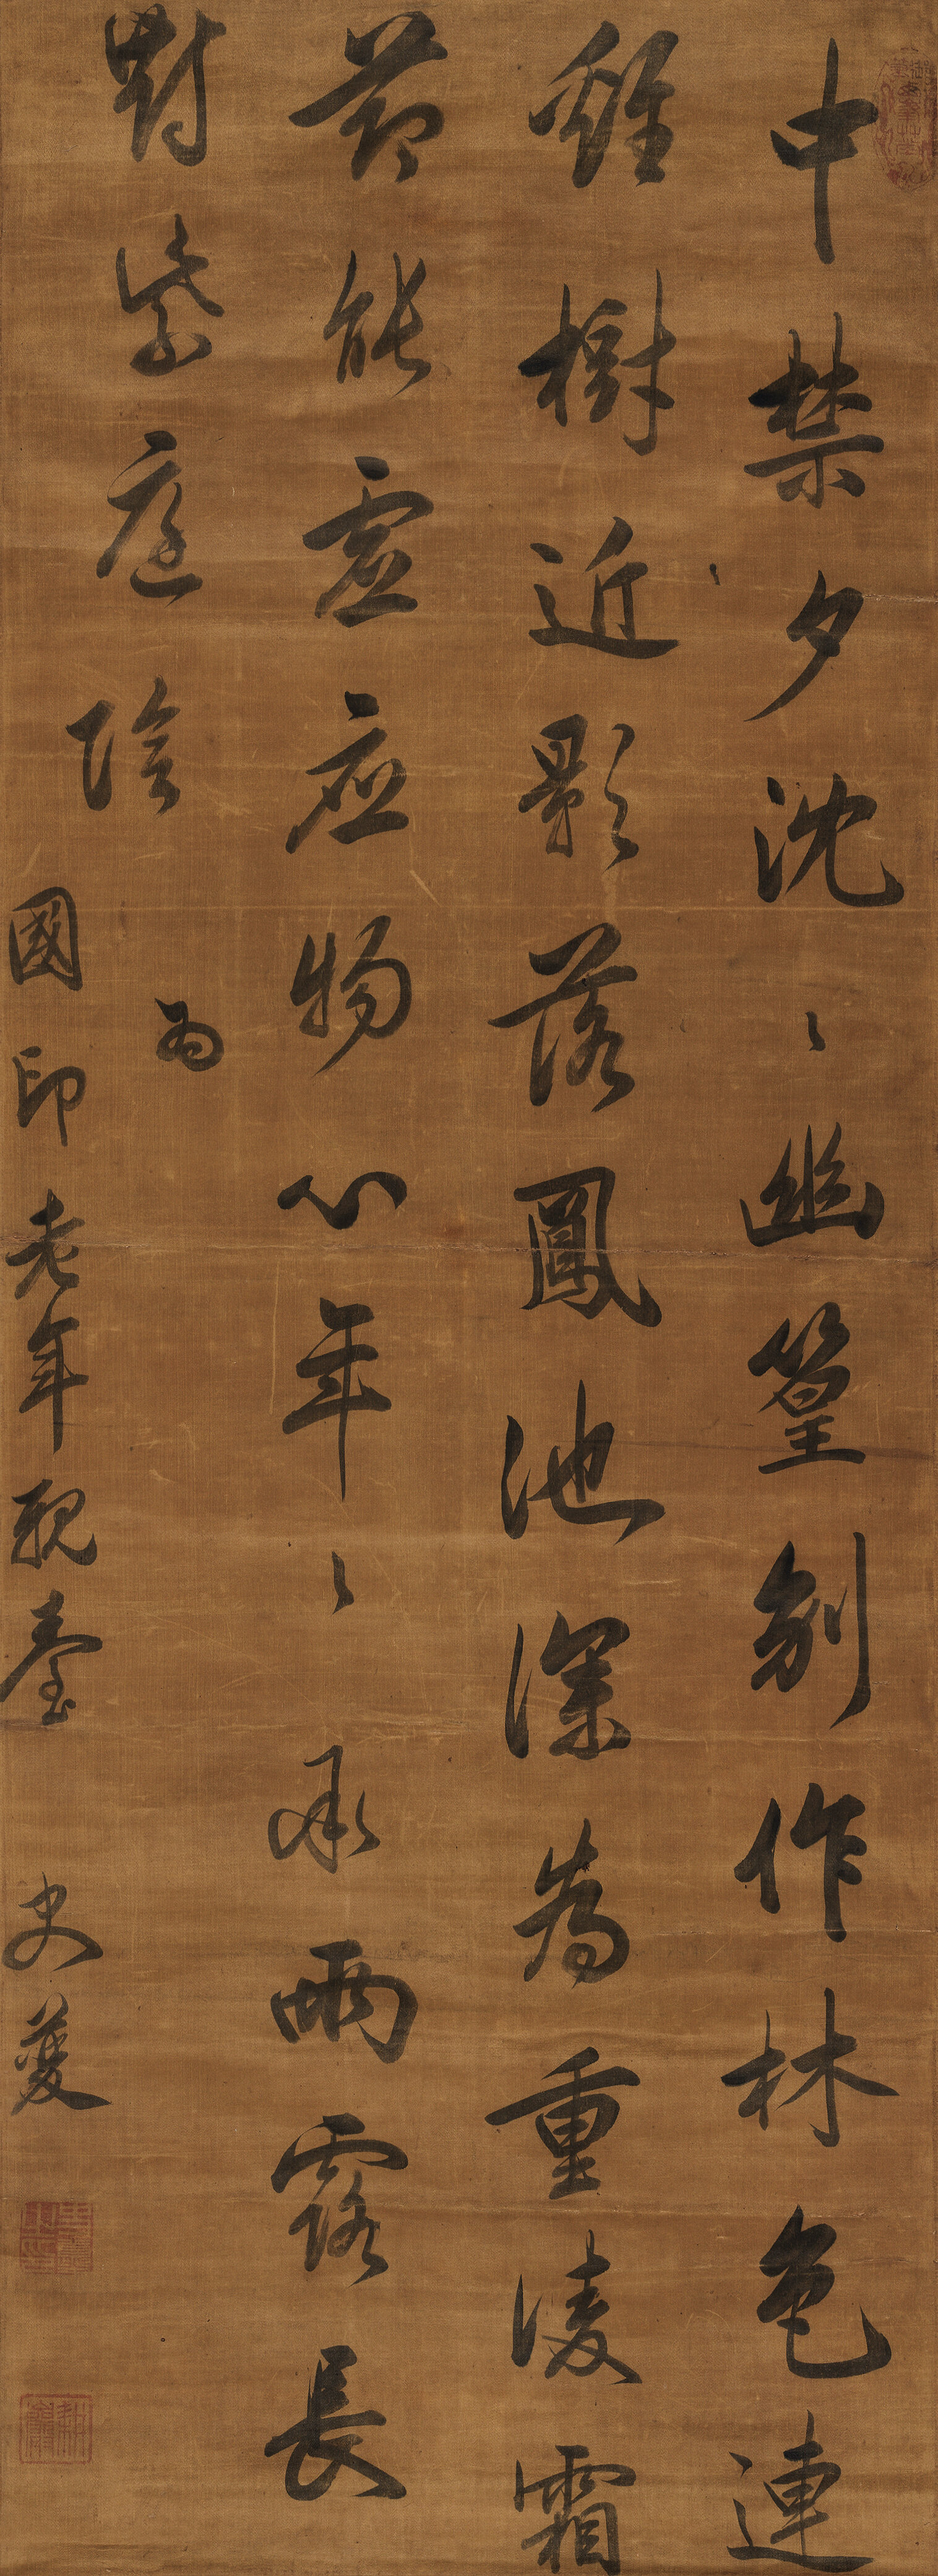 中禁夕沈〻幽篁別作林色連
雞樹近影落鳳池深為重凌霜
節能虛应物心年〻承雨露長
對紫庭陰
為
國印老年親臺
史蒦